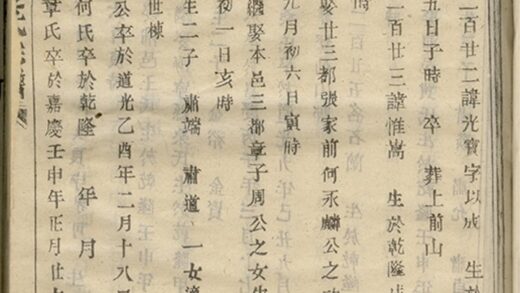 一百廿二諱光寶字以成 生於
五日子時 卒 葬上前山
一百廿三諱惟嵩 生於乾隆戊
時
娶廿三都張家前何永麟公之
九月初六日寅時
繼娶本邑三都章子周公之女生
初一日亥時
生二子 肅端 肅道 一女適
世棟
公卒於道光乙酉年二月十八
何氏卒於乾隆 年 月
章氏卒於嘉慶壬申年正月廿